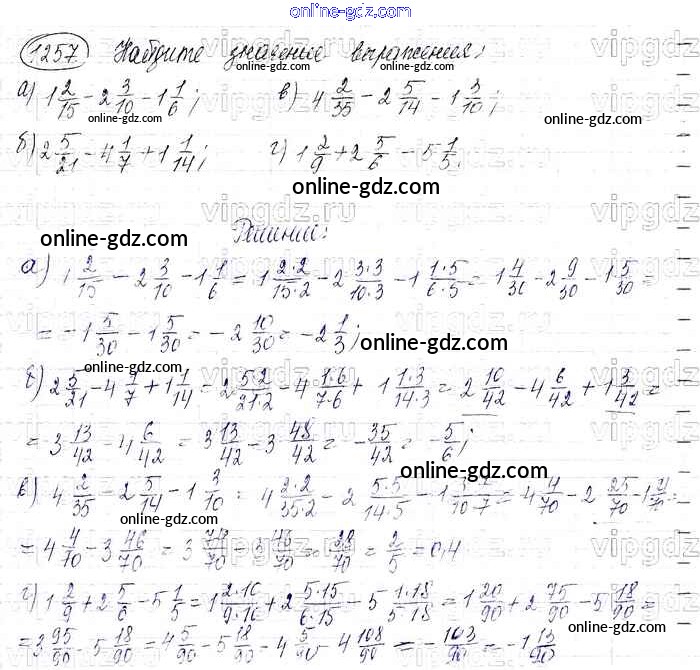 online-gdz.com
1257. Найдите значение выражения:
а) 1 2/15 − 2 3/10 − 1 1/6; в) 4 2/35 − 2 5/14 − 1 3/10;
б) 2 5/21 − 4 1/7 + 1 1/14; г) 1 2/9 + 2 5/6 − 5 1/5.
online-gdz.com
Решение:
а) 1 2/15 − 2 3/10 − 1 1/6 = 1 2·2/15·2 − 2 3·3/10·3 − 1 1·5/6·5 = 1 4/30 − 2 9/30 − 1 5/30 =
= −1 5/30 − 1 5/30 = −2 10/30 = −2 1/3;
б) 2 5/21 − 4 1/7 + 1 1/14 = 2 5·2/21·2 − 4 1·6/7·6 + 1 1·3/14·3 = 2 10/42 − 4 6/42 + 1 3/42 =
= 3 13/42 − 4 6/42 = 3 13/42 − 3 48/42 = −35/42 = −5/6;
в) 4 2/35 − 2 5/14 − 1 3/10 = 4 2·2/35·2 − 2 5·5/14·5 − 1 3·7/10·7 = 4 4/70 − 2 25/70 − 1 21/70 =
= 4 4/70 − 3 46/70 = 3 74/70 − 3 46/70 = 28/70 = 2/5 = 0,4
г) 1 2/9 + 2 5/6 − 5 1/5 = 1 2·10/9·10 + 2 5·15/6·15 − 5 1·18/5·18 = 1 20/90 + 2 75/90 − 5 18/90 =
= 3 95/90 − 5 18/90 = 4 5/90 − 5 18/90 = 4 5/90 − 4 108/90 = −103/90 = −1 13/90